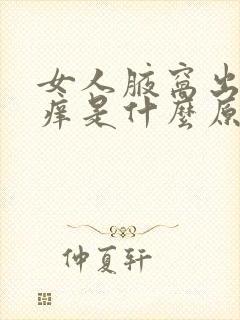 女人腋窝出
痒是什麼原
仲夏轩